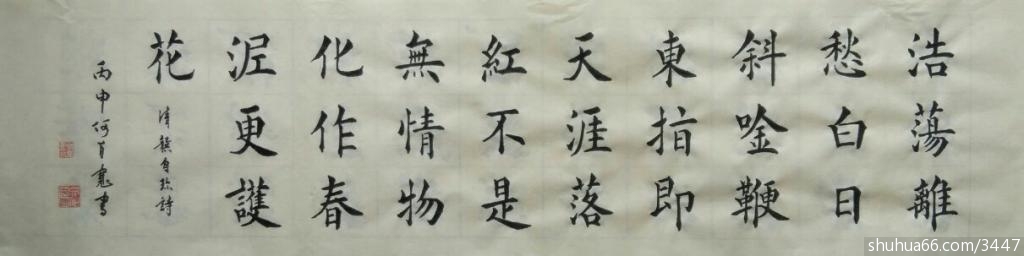 浩蕩離
愁白日
斜唫鞭
東指即
天涯落
紅不是
無情物
化作春
泥更護
花
清龔自珍詩
丙申何書
shuhua66.com/3447